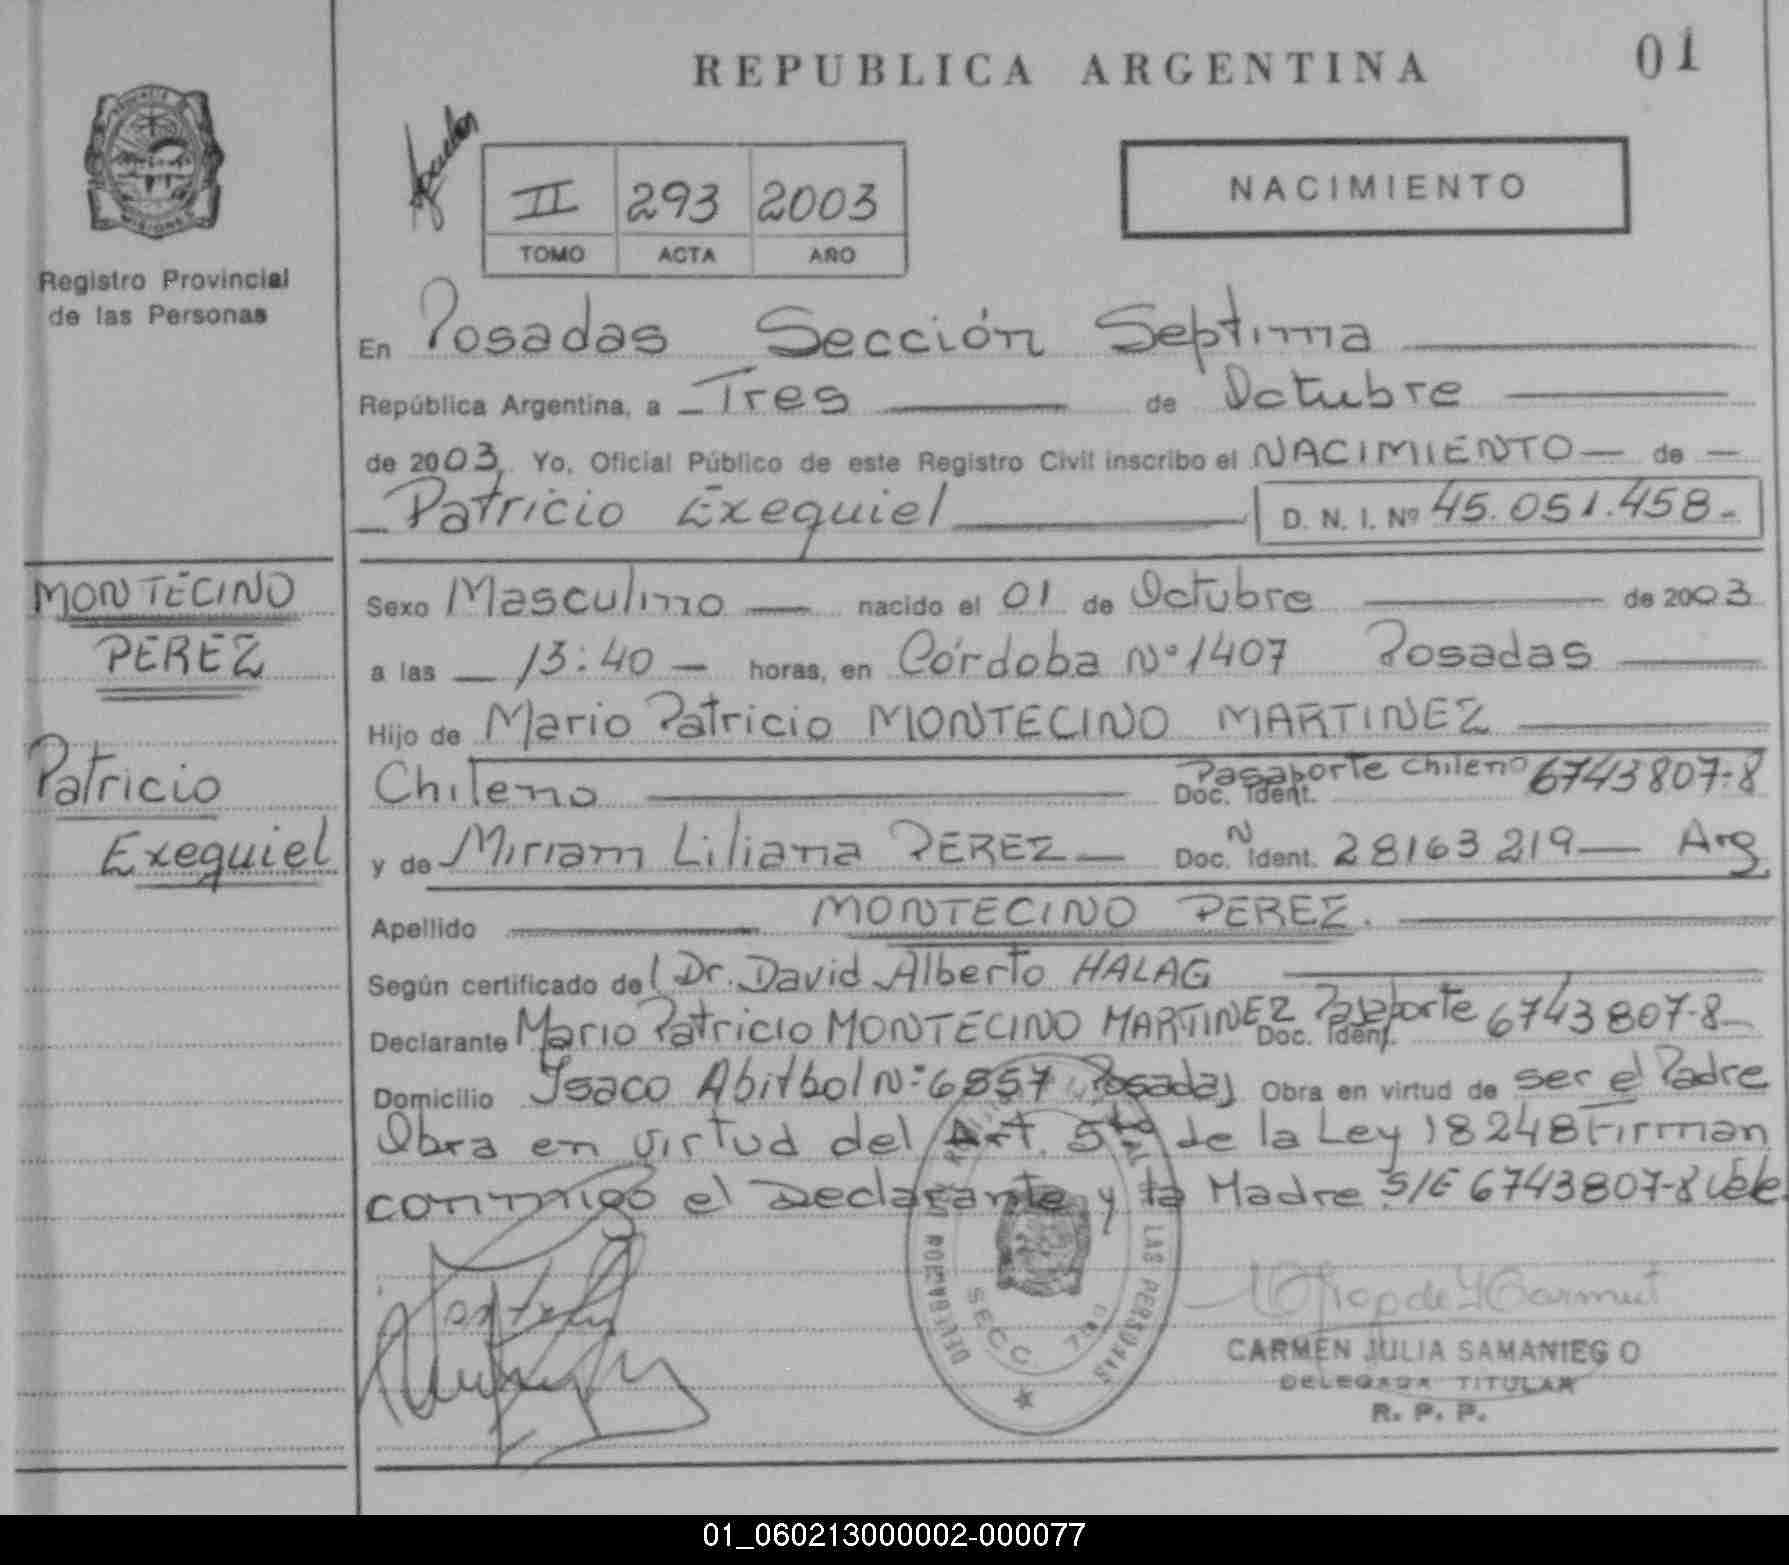 REPUBLICA ARGENTINA
01
PROVINCIA DE
MISIONES
Registro Provincial
de las Personas
II 293 2003
TOMO ACTA AÑO
NACIMIENTO
En Posadas Sección Septima
República Argentina, a Tres de Octubre
de 2003, Yo, Oficial Público de este Registro Civil inscribo el NACIMIENTO de
Patricio Exequiel D. N. I. Nº 45.051.458
MONTECINO
PEREZ
Patricio
Exequiel
Sexo Masculino nacido el 01 de Octubre de 2003
a las 13:40 horas, en Córdoba Nº 1407 Posadas
Hijo de Mario Patricio MONTECINO MARTINEZ
Chileno Doc. Ident. Pasaporte Chileno 6743807-8
y de Miriam Liliana PEREZ Doc. N Ident. 28163219 Arg
Apellido MONTECINO PEREZ.
Según certificado de Dr. David Alberto HALAG
Declarante Mario Patricio MONTECINO MARTINEZ Doc. Ident. Pasaporte 6743807-8
Domicilio Isaco Abitbol Nº 6857 Posadas Obra en virtud de ser el Padre
Obra en virtud del Art. 5to de la Ley 18248 Firman
conmigo el Declarante y la Madre S/E 6743807-8 Vale
LAS PERSONAS
SECC. 7MA
CARMEN JULIA SAMANIEGO
DELEGADA TITULAR
R. P. P.
01_060213000002-000077